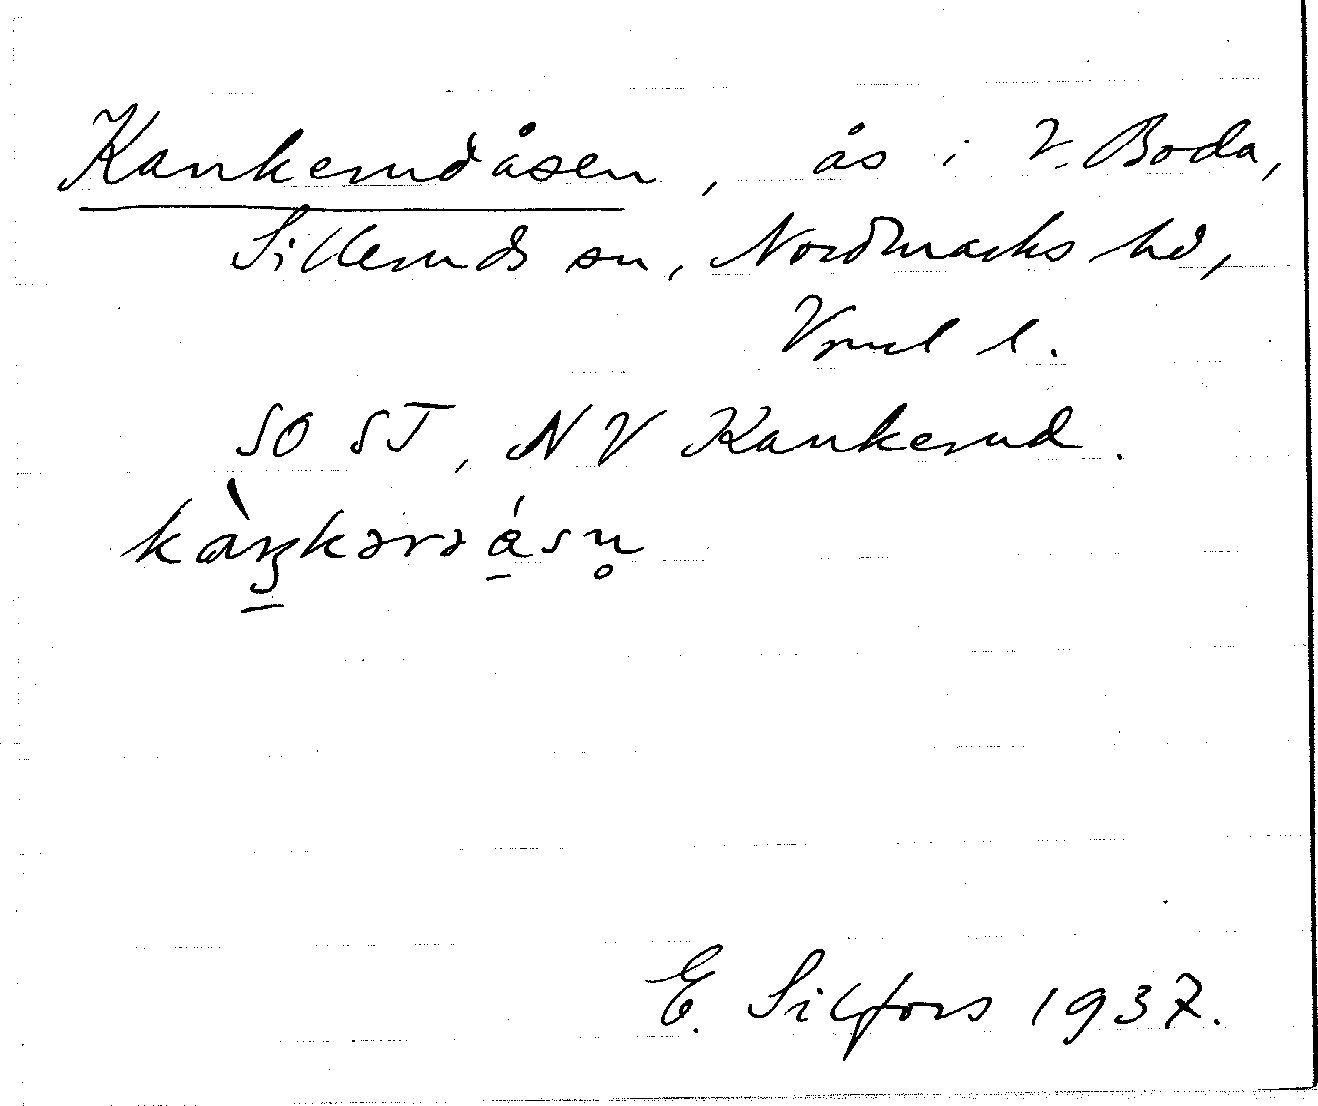 Kankerudåsen, ås i V. Boda,
Silleruds sn, Nordmarks hd,
Vrml l.
SO ST, NV Kankerud.
E. Silfors 1937.